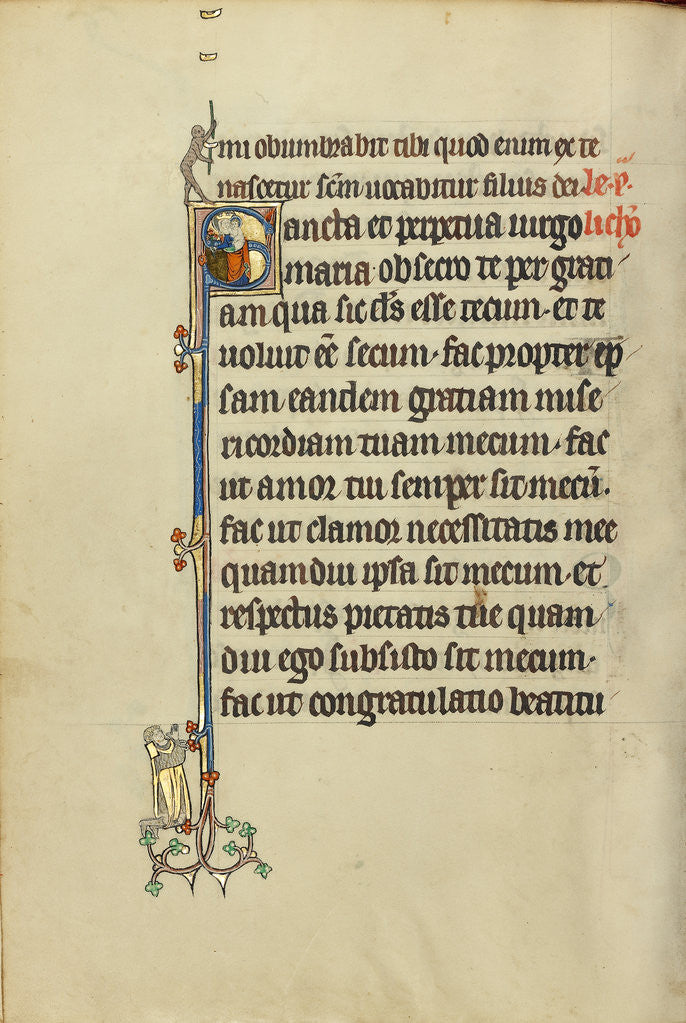 mi obumbrabit tibi quod enim ex te
nascetur scm̄ uocabitur filius dei
Sancta et perpetua uirgo
maria obsecro te per grati
am qua sic dn̄s esse tecum et te
uoluit eē secum fac propter ep̄
sam eandem gratiam mise
ricordiam tuam mecum fac
ut amor tui semper sit mecū.
fac ut clamor necessitatis mee
quamdiu ipsa sit mecum et
respectus pietatis tue quam
diu ego subsisto sit mecum.
fac ut congratulatio beatitu